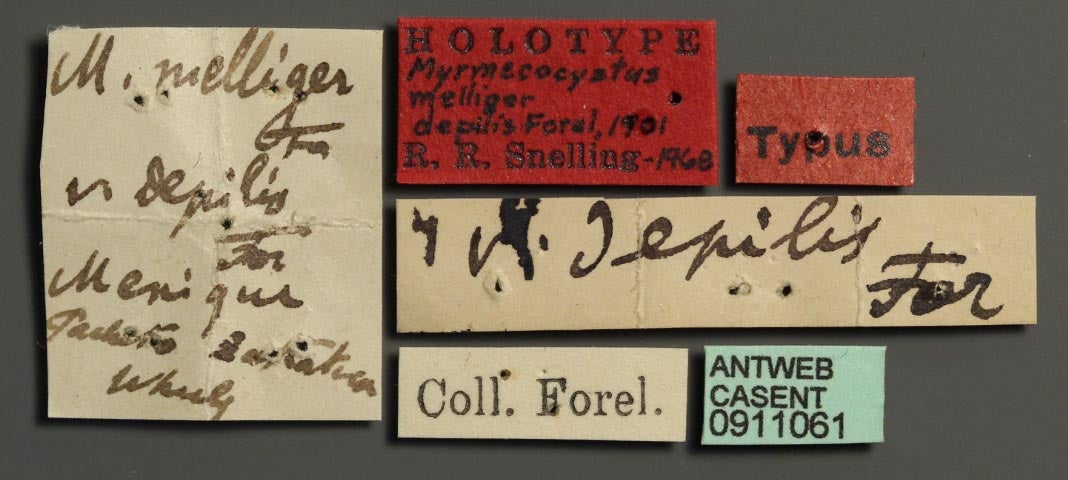 M. melliger
For
v. depilis
For
Mexique
Pacheco Zacatecas
Wheel.
HOLOTYPE
Myrmecocystus
melliger
depilis Forel, 1901
R. R. Snelling-1968
Typus
v. depilis
For
Coll. Forel.
ANTWEB
CASENT
0911061